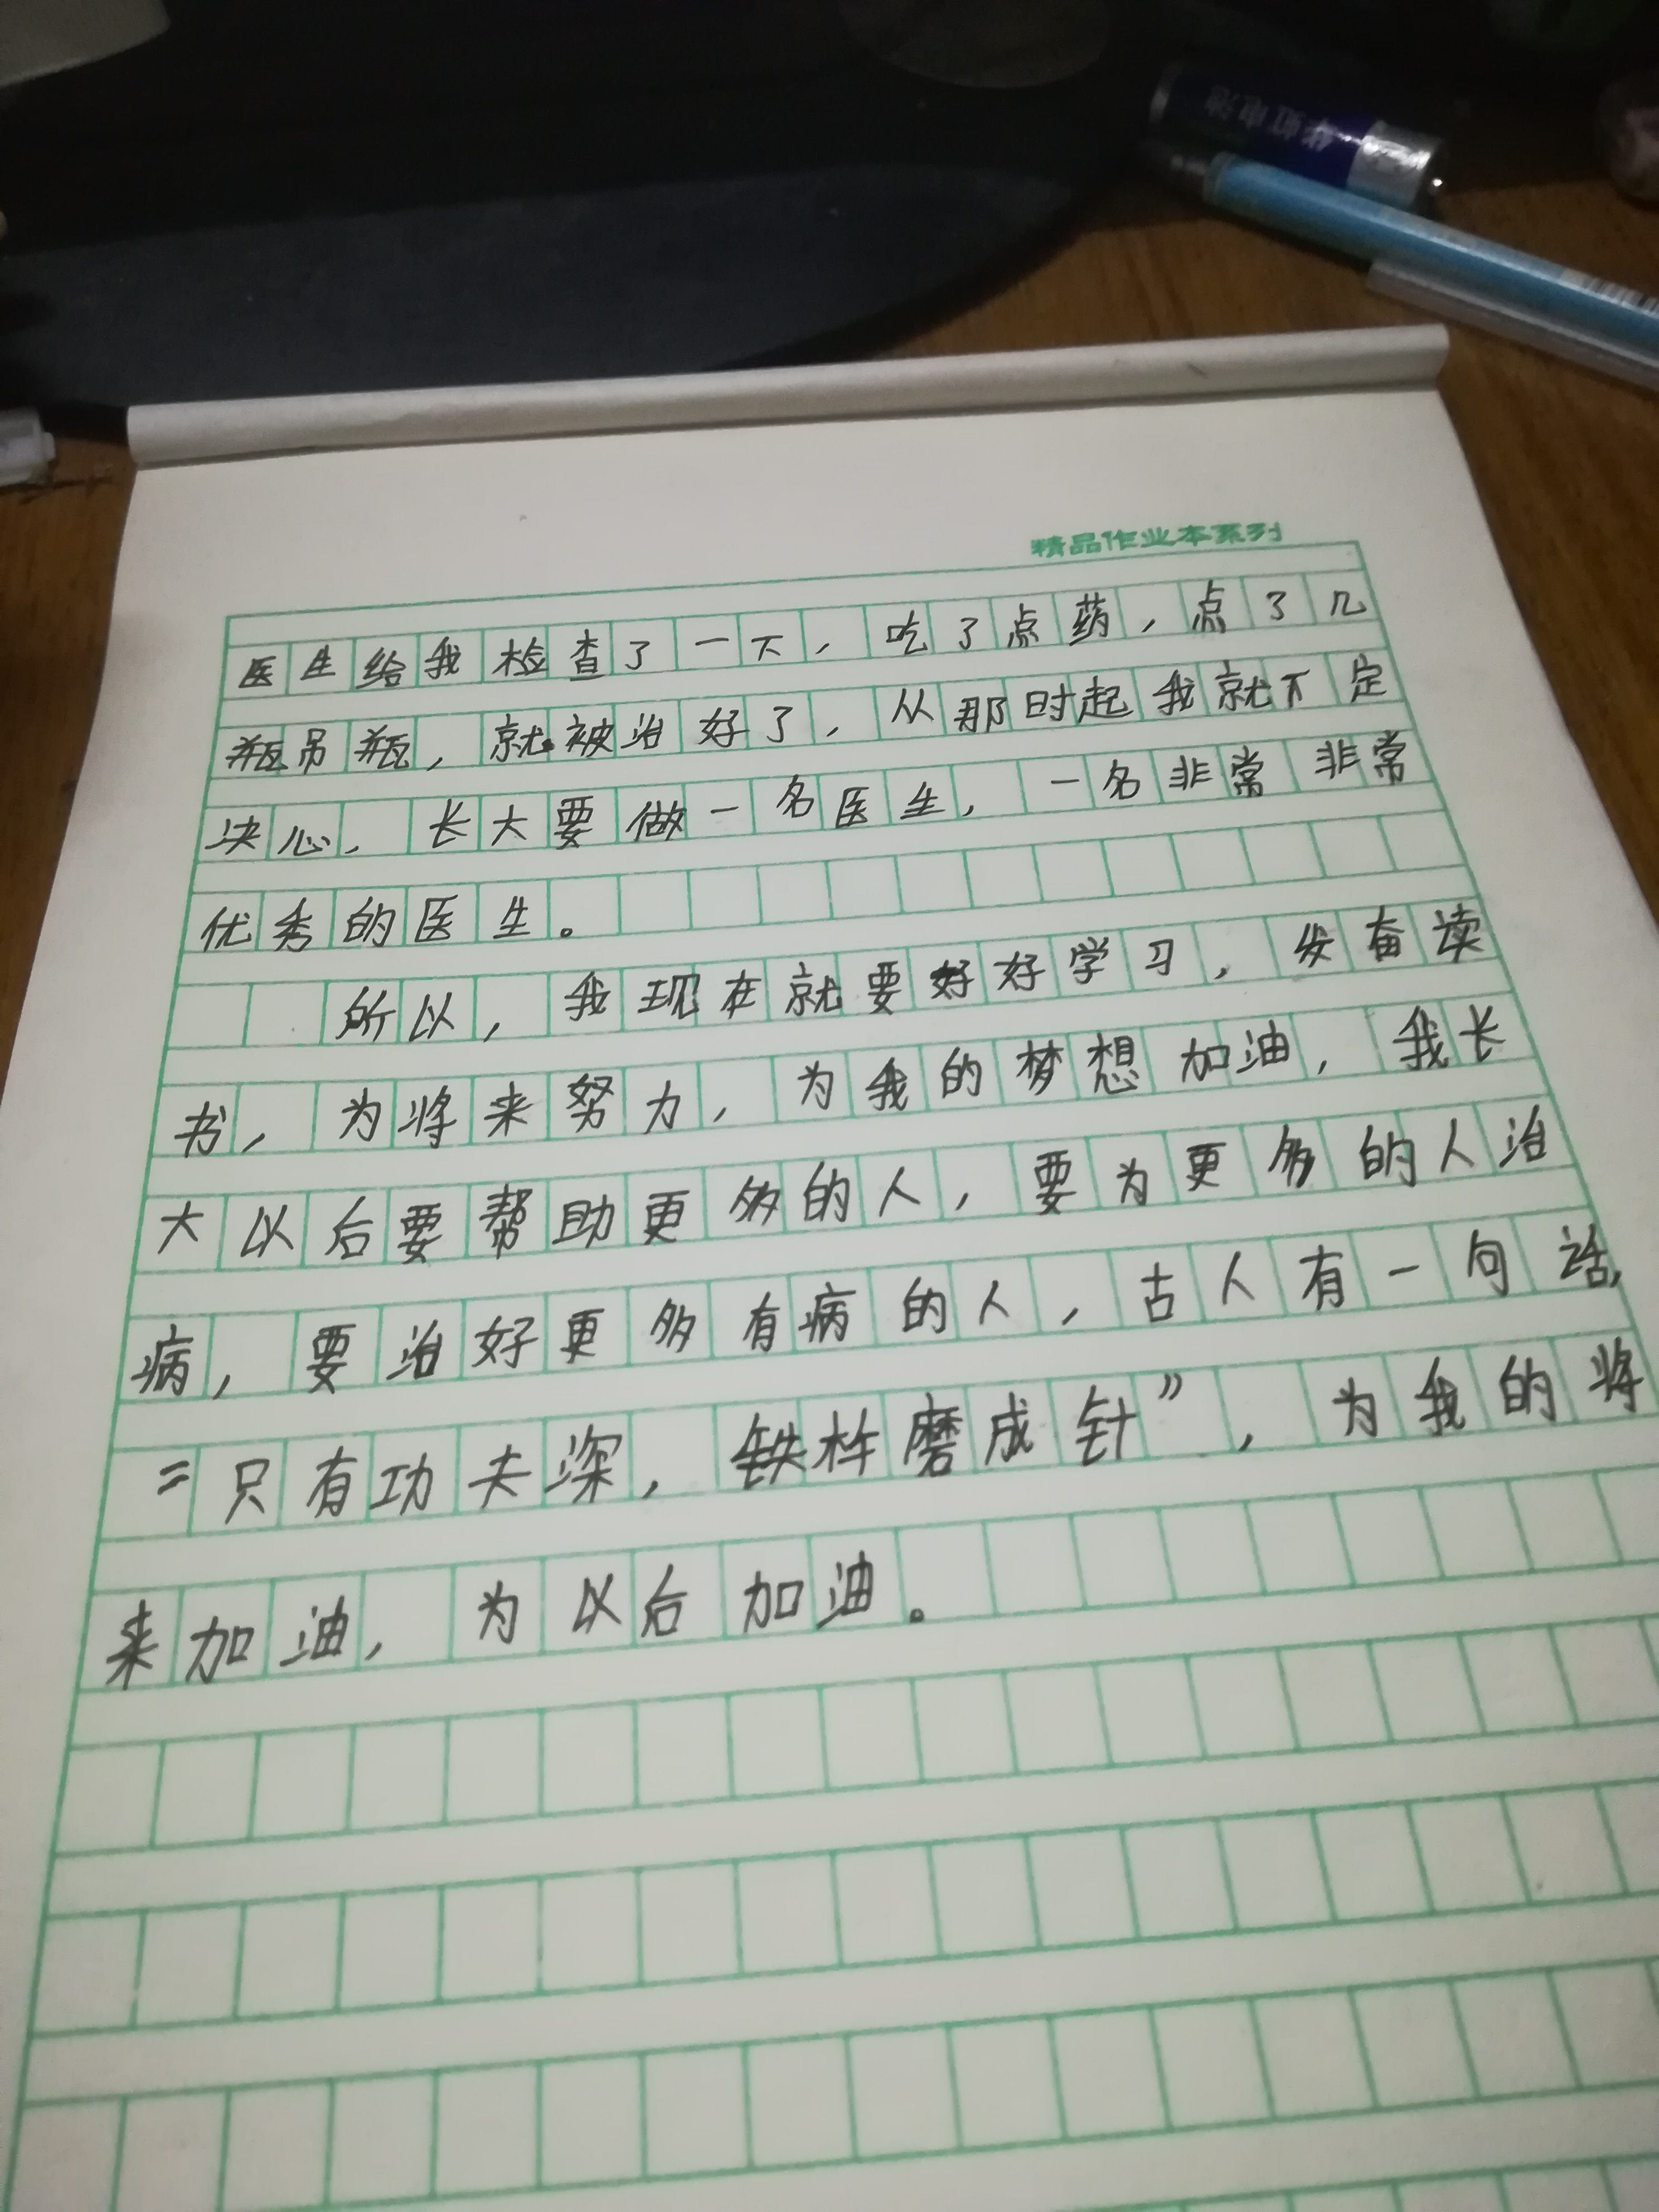 华虹电池
精品作业本系列
医生给我检查了一下，吃了点药，点了几
瓶吊瓶，就被治好了，从那时起我就下定
决心，长大要做一名医生，一名非常非常
优秀的医生。
所以，我现在就要好好学习，发奋读
书，为将来努力，为我的梦想加油，我长
大以后要帮助更多的人，要为更多的人治
病，要治好更多有病的人，古人有一句话，
“只有功夫深，铁杵磨成针”，为我的将
来加油，为以后加油。